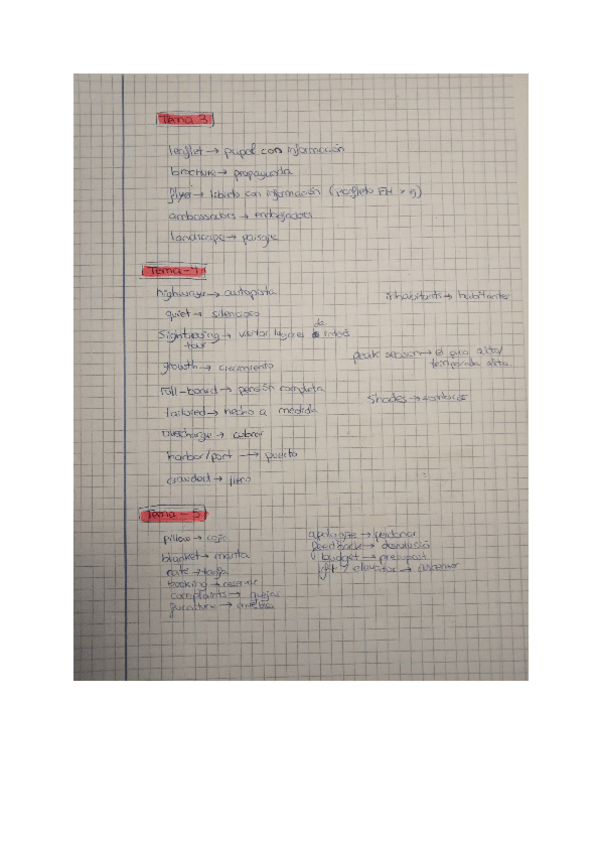 Tema 3
leaflet → papel con información
brochure → propaganda
flyer → librito con información (folleto
ambassadors → embajadores
landscape → paisaje
Tema - 4
highways → autopista
inhabitants → habitantes
quiet → silencioso
Sightseeing → visitar lugares de interés
tour
peak season → el pico alto/
temporada alta
growth → crecimiento
full-board → pensión completa
tailored → hecho a medida
Shades →
overcharge → cobrar
harbor/port → puerto
crowded → lleno
Tema - 5
pillow → cojín
apologize → perdonar
feedback → devolució
blanket → manta
budget → presupost
rate → tarifa
lift / elevator → ascensor
booking → reservar
complaints → quejas
furniture → muebles